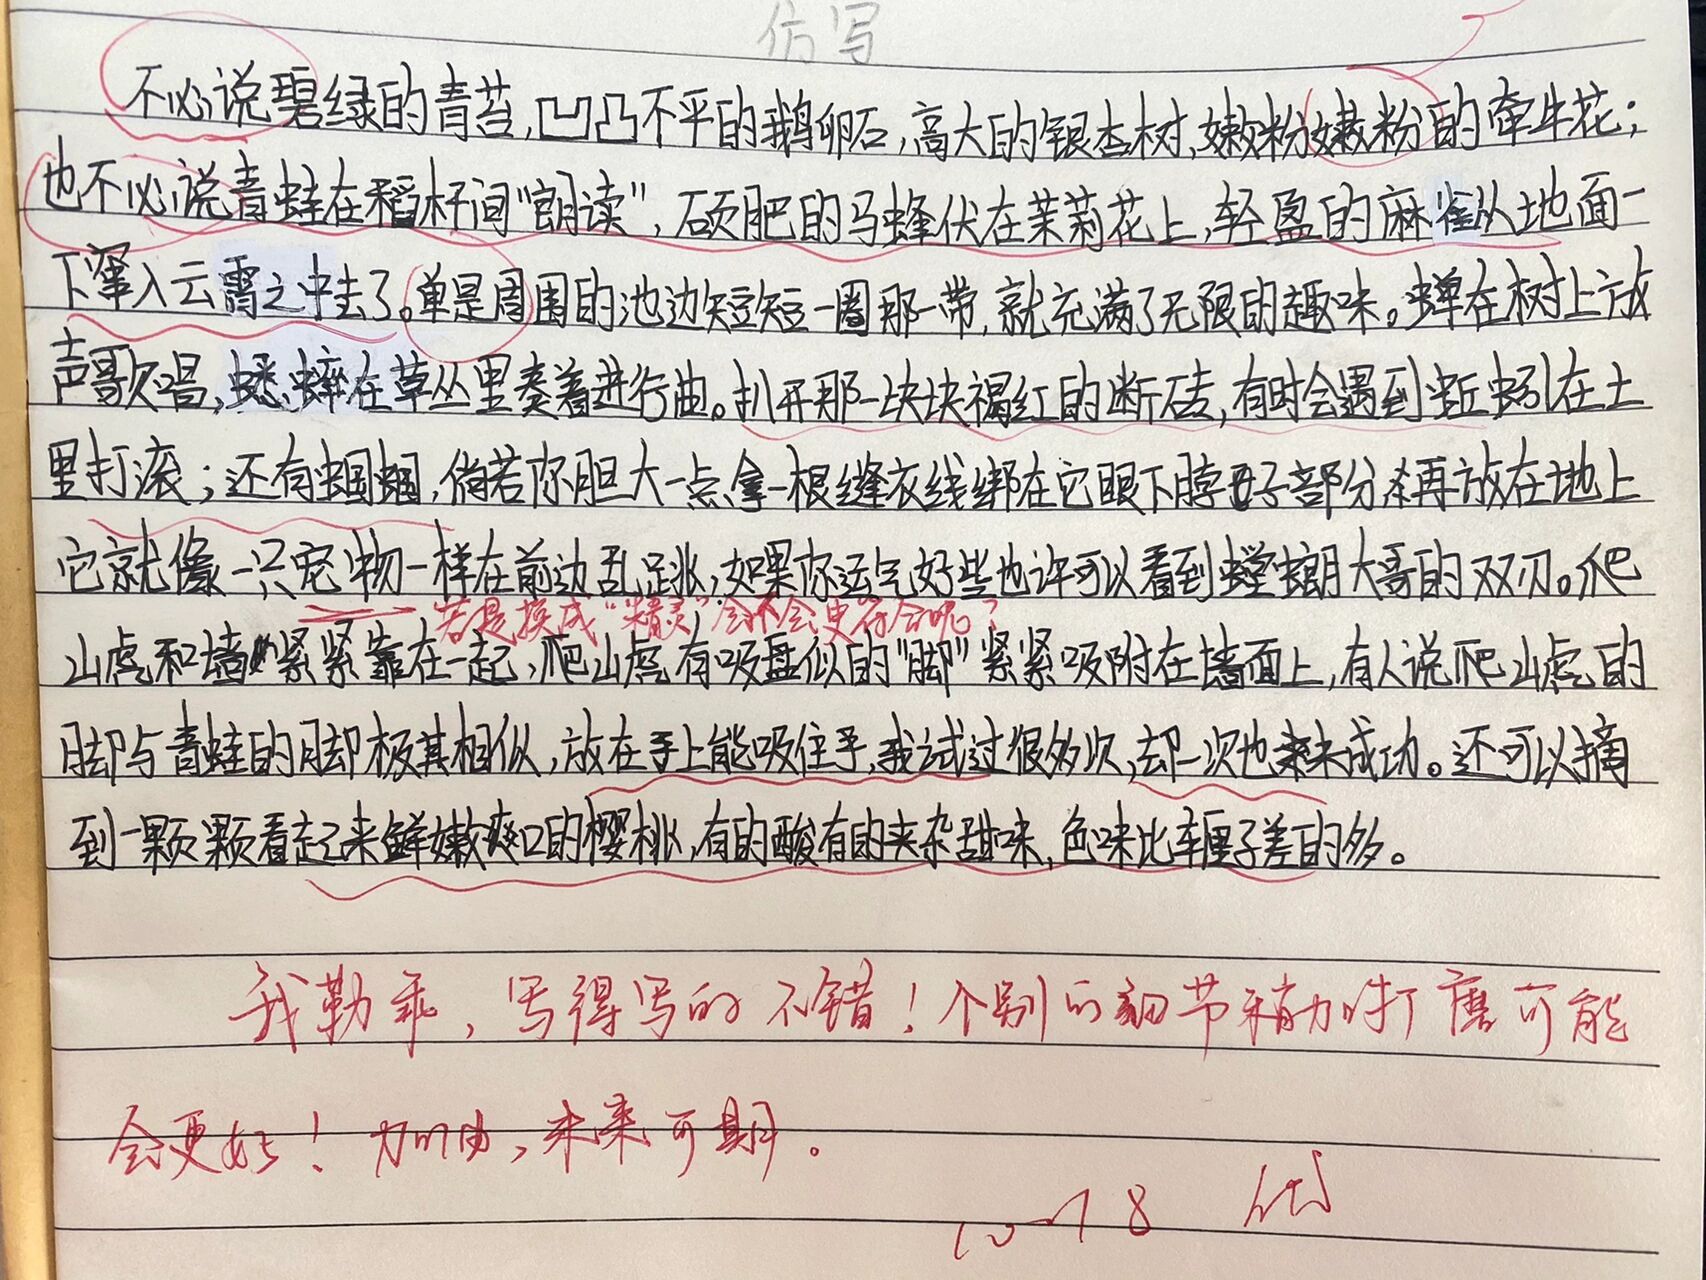 仿写
不必说碧绿的青苔,凹凸不平的鹅卵石,高大的银杏树,嫩粉嫩粉的牵牛花;
也不必说青蛙在稻杆间“朗读”,硕肥的马蜂伏在茉莉花上,轻盈的麻雀从地面一
下窜入云霄之中去了。单是周围的池边短短一圈那一带,就充满了无限的趣味。蝉在树上放
声歌唱,蟋蟀在草丛里奏着进行曲。扒开那一块块褐红的断砖,有时会遇到蚯蚓在土
里打滚;还有蝈蝈,倘若你胆大一点拿一根缝衣线绑在它眼下脖子部分再放在地上
它就像一只宠物一样在前边乱跳,如果你运气好些也许可以看到螳螂大哥的双刃。爬
若是换成“精灵”会不会更符合呢?
山虎和墙紧紧靠在一起,爬山虎有吸盘似的“脚”紧紧吸附在墙面上,有人说爬山虎的
脚与青蛙的脚极其相似,放在手上能吸住手,我试过很多次,却一次也未成功。还可以摘
到一颗颗看起来鲜嫩爽口的樱桃,有的酸有的夹杂甜味,色味比车厘子差的多。
我勒乖,写得写的不错!个别的细节稍加打磨可能
会更好!加油,未来可期。